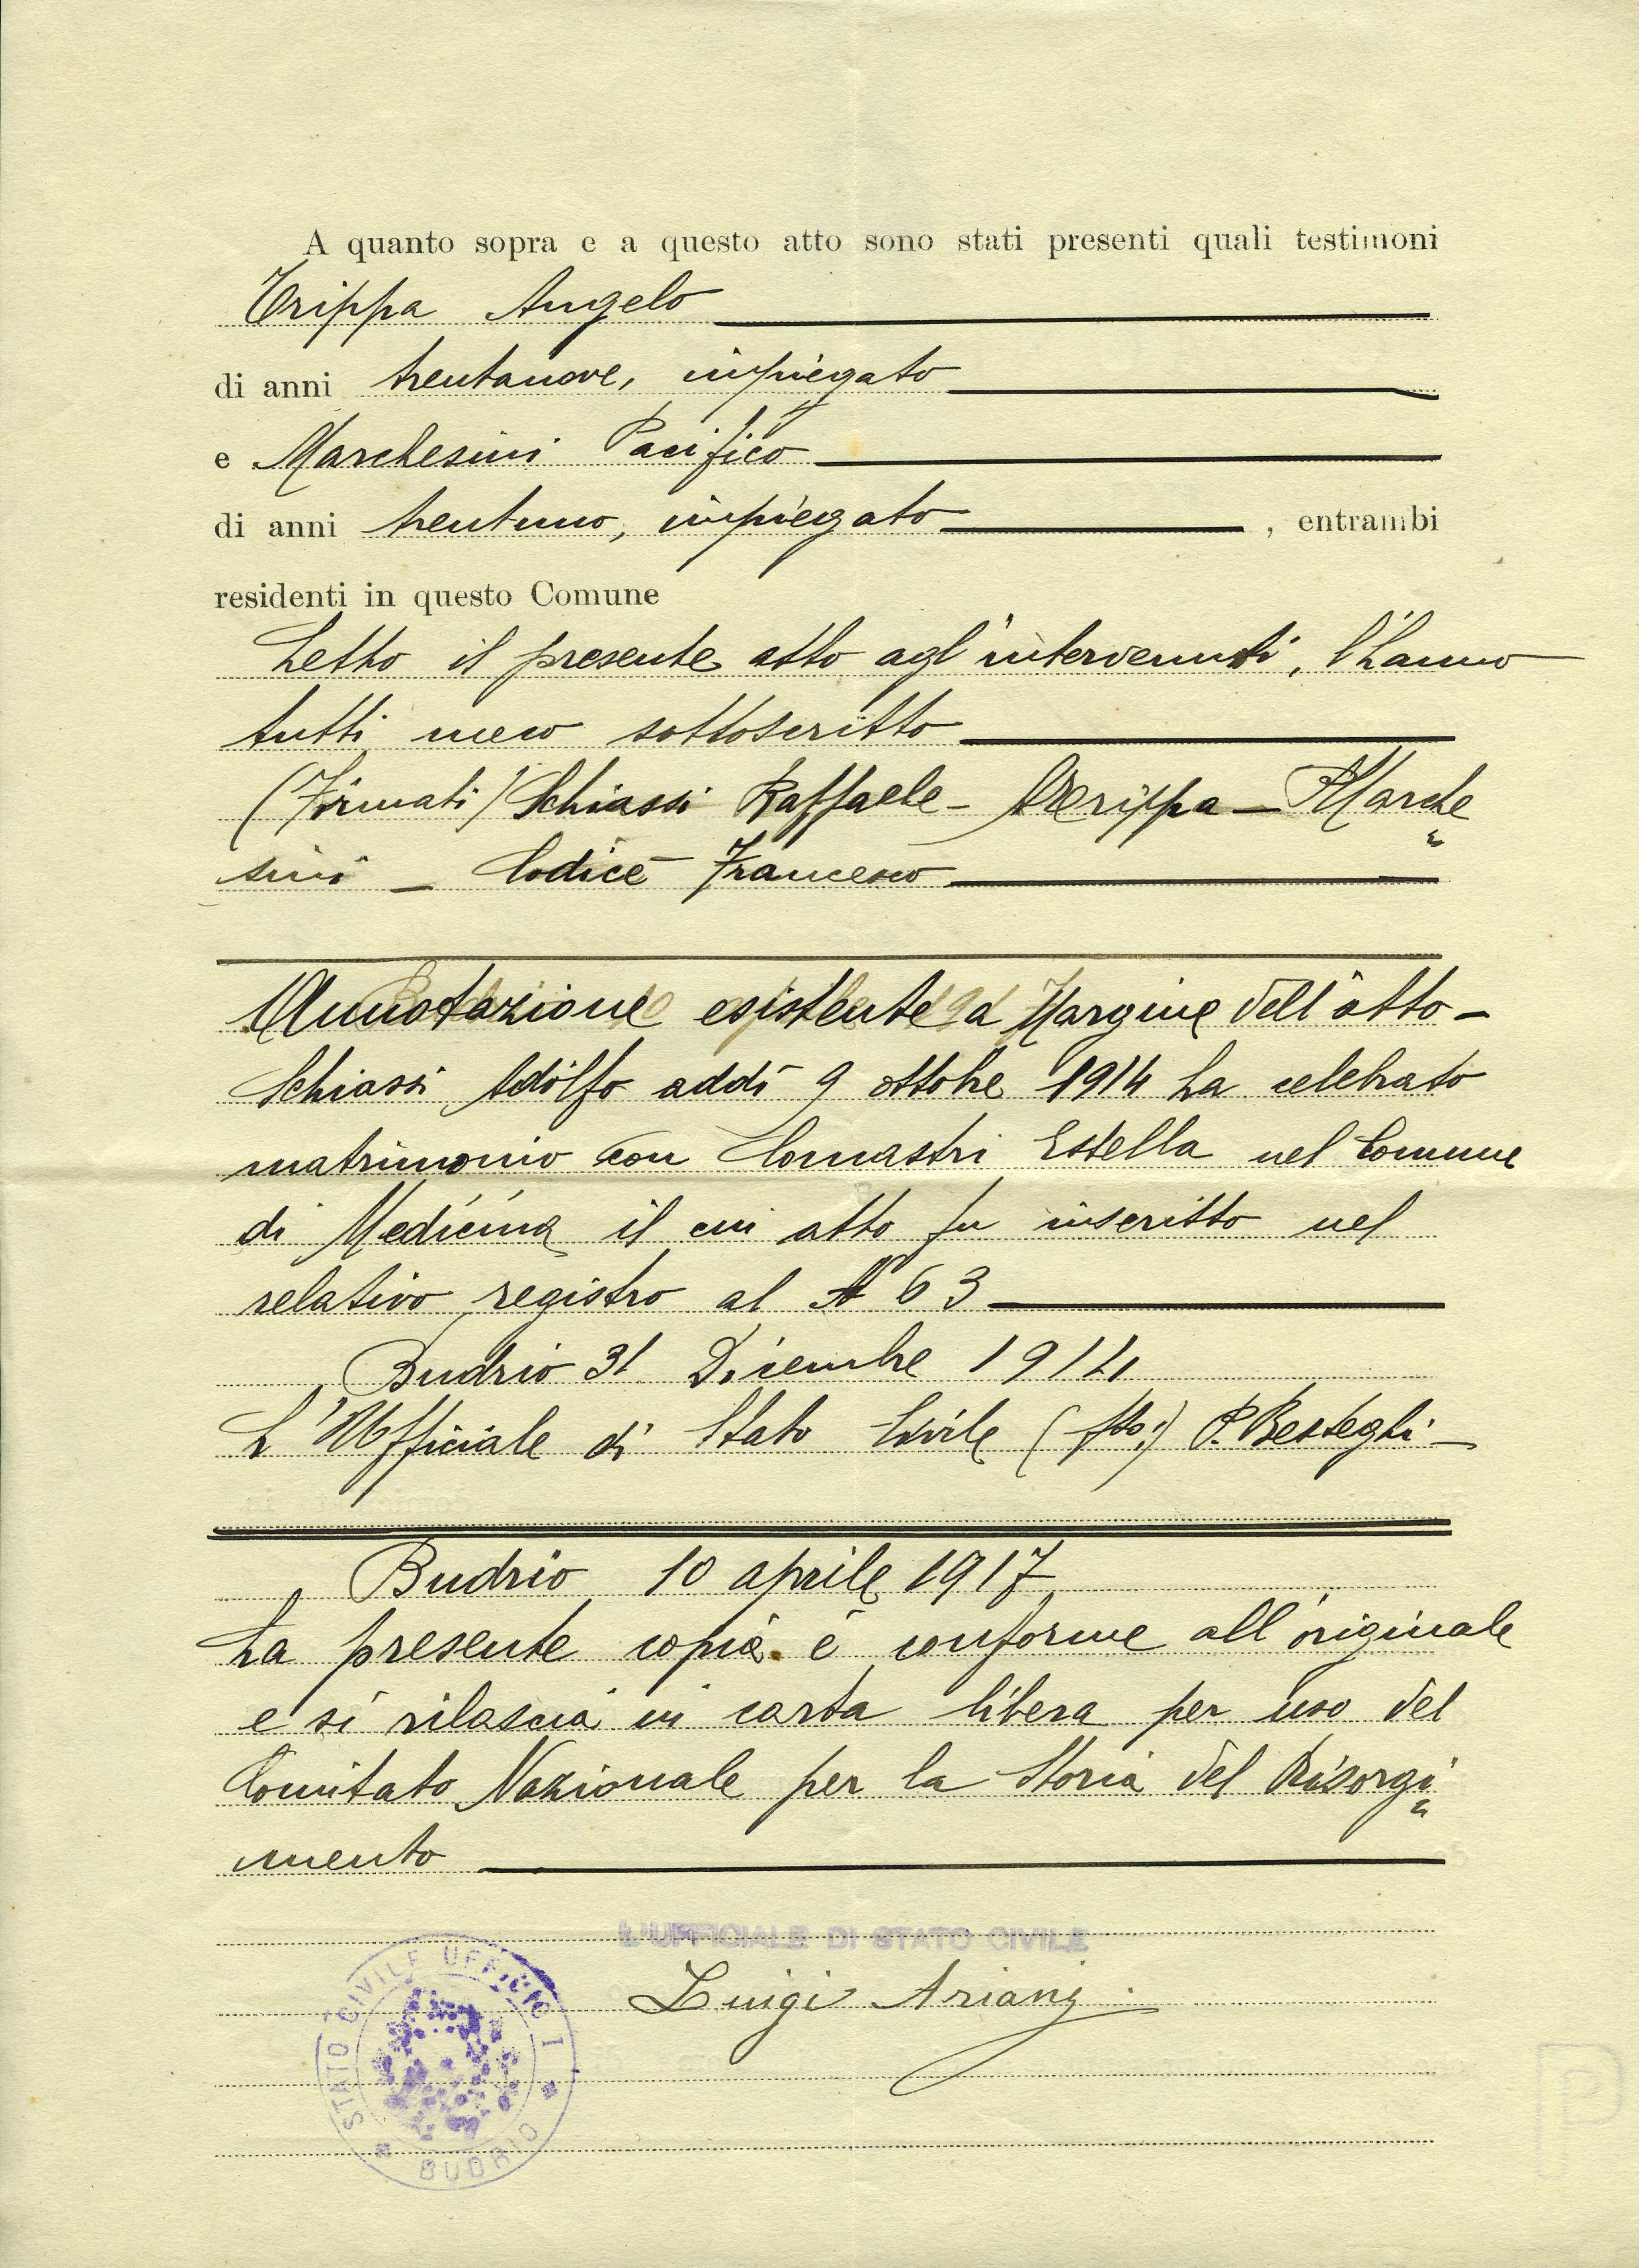 A quanto sopra e a questo atto sono stati presenti quali testimoni
Trippa Angelo
di anni trentanove, impiegato
e Marchesini Pacifico
di anni trentuno, impiegato , entrambi
residenti in questo Comune
Letto il presente atto agl'intervenuti, l'hanno
tutti meco sottoscritto
(Firmati) Schiassi Raffaele - Trippa - P Marche
sini - Codicè Francesco
Annotazione esistente a Margine dell'atto -
Schiassi Adolfo addì 9 ottobre 1914 ha celebrato
matrimonio con Comastri Estella nel Comune
di Medicina il cui atto fu inscritto nel
relativo registro al N 63
Budrio 31 Dicembre 1914
L'Ufficiale di Stato Civile (fto:) P. Besteghi -
Budrio 10 aprile 1917
La presente copia è conforme all'originale
e si rilascia in carta libera per uso del
Comitato Nazionale per la Storia del Risorgi
mento
L'UFFICIALE DI STATO CIVILE
Luigi Ariani
STATO CIVILE UFFICIO I
BUDRIO
P